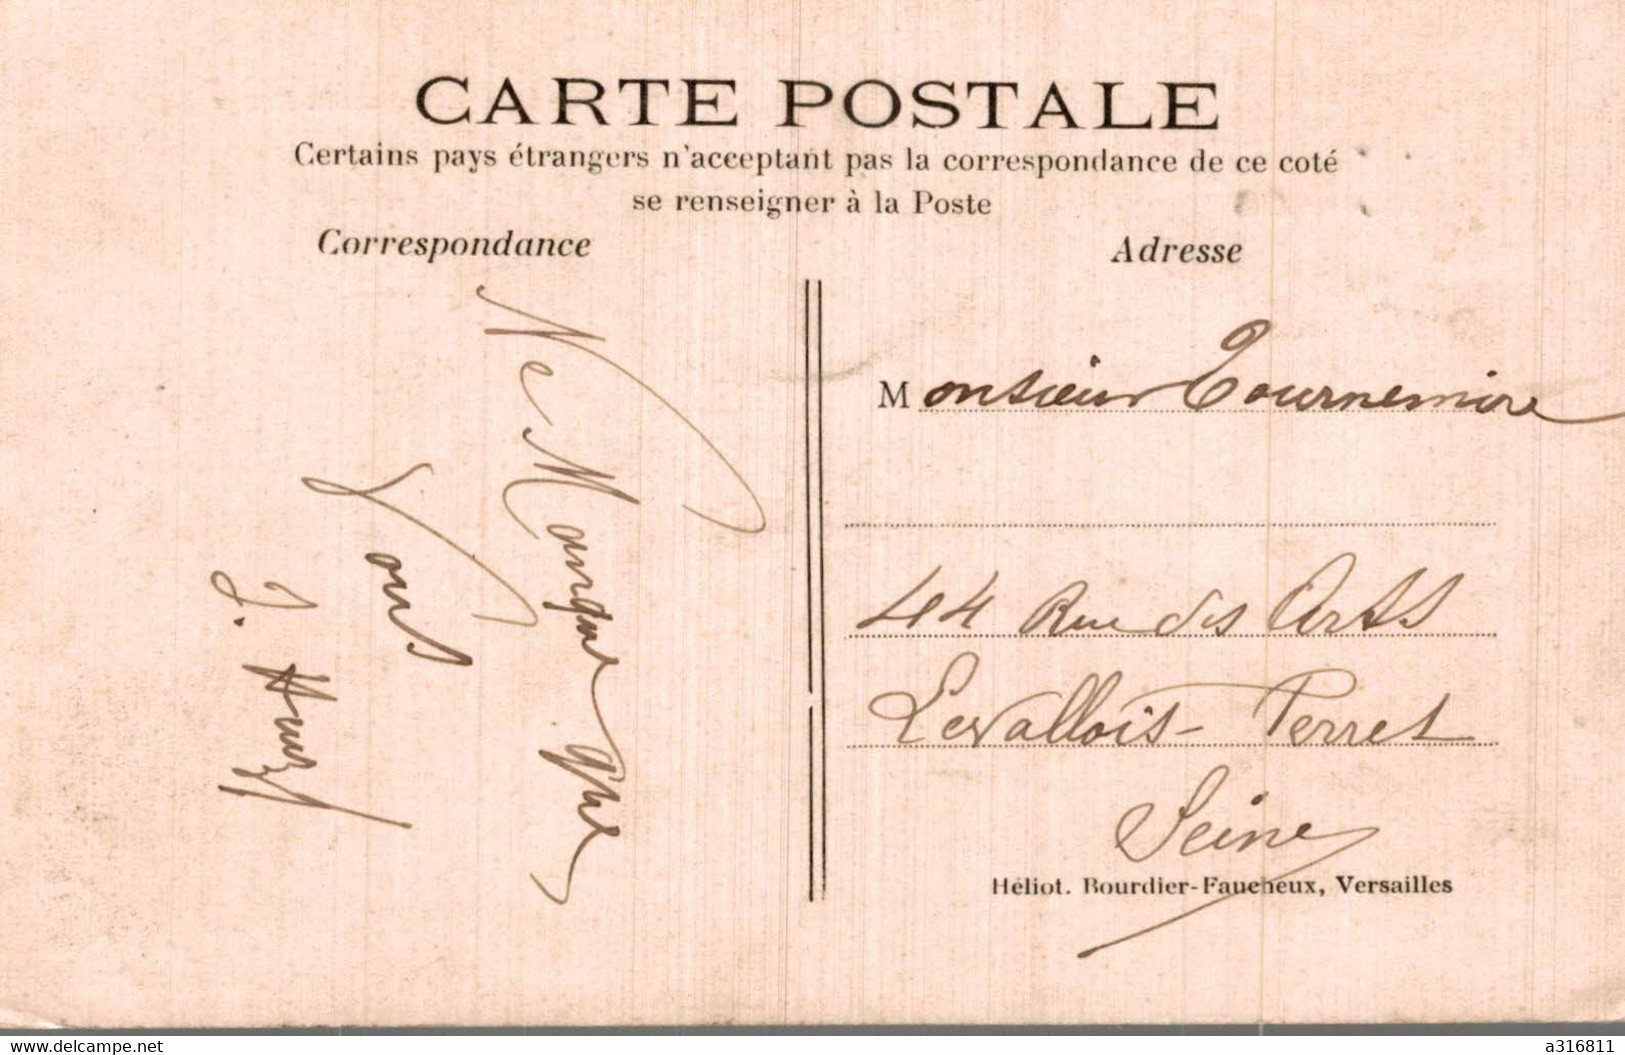 CARTE POSTALE
Certains pays étrangers n'acceptant pas la correspondance de ce coté
se renseigner à la Poste
Correspondance
Adresse
Ne Manque que
Vous
J.
Monsieur Tournemire
44 Rue des Arts
Levallois-Perret
Seine
Héliot. Bourdier-Faucheux, Versailles
www.delcampe.net
a316811